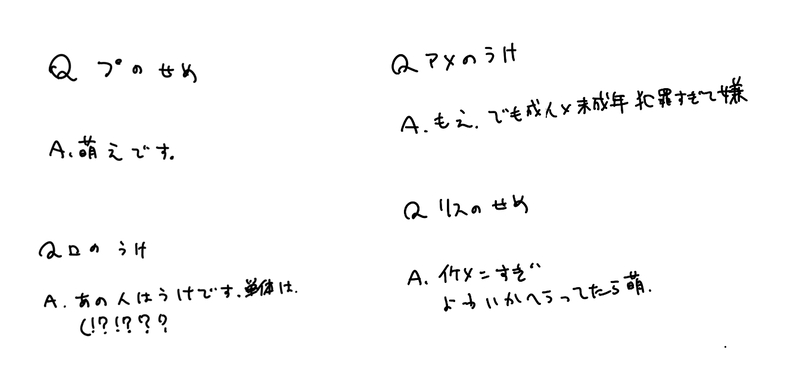 Q プのせめ
A. 萌えです。
Q ロのうけ
A. あの人はうけです。単体は.
(!?!???
Q アメのうけ
A. もえ. でも成人×未成年犯罪すぎて嫌
Q リスのせめ
A. イケメンすぎ
よわいかへらってたら萌.